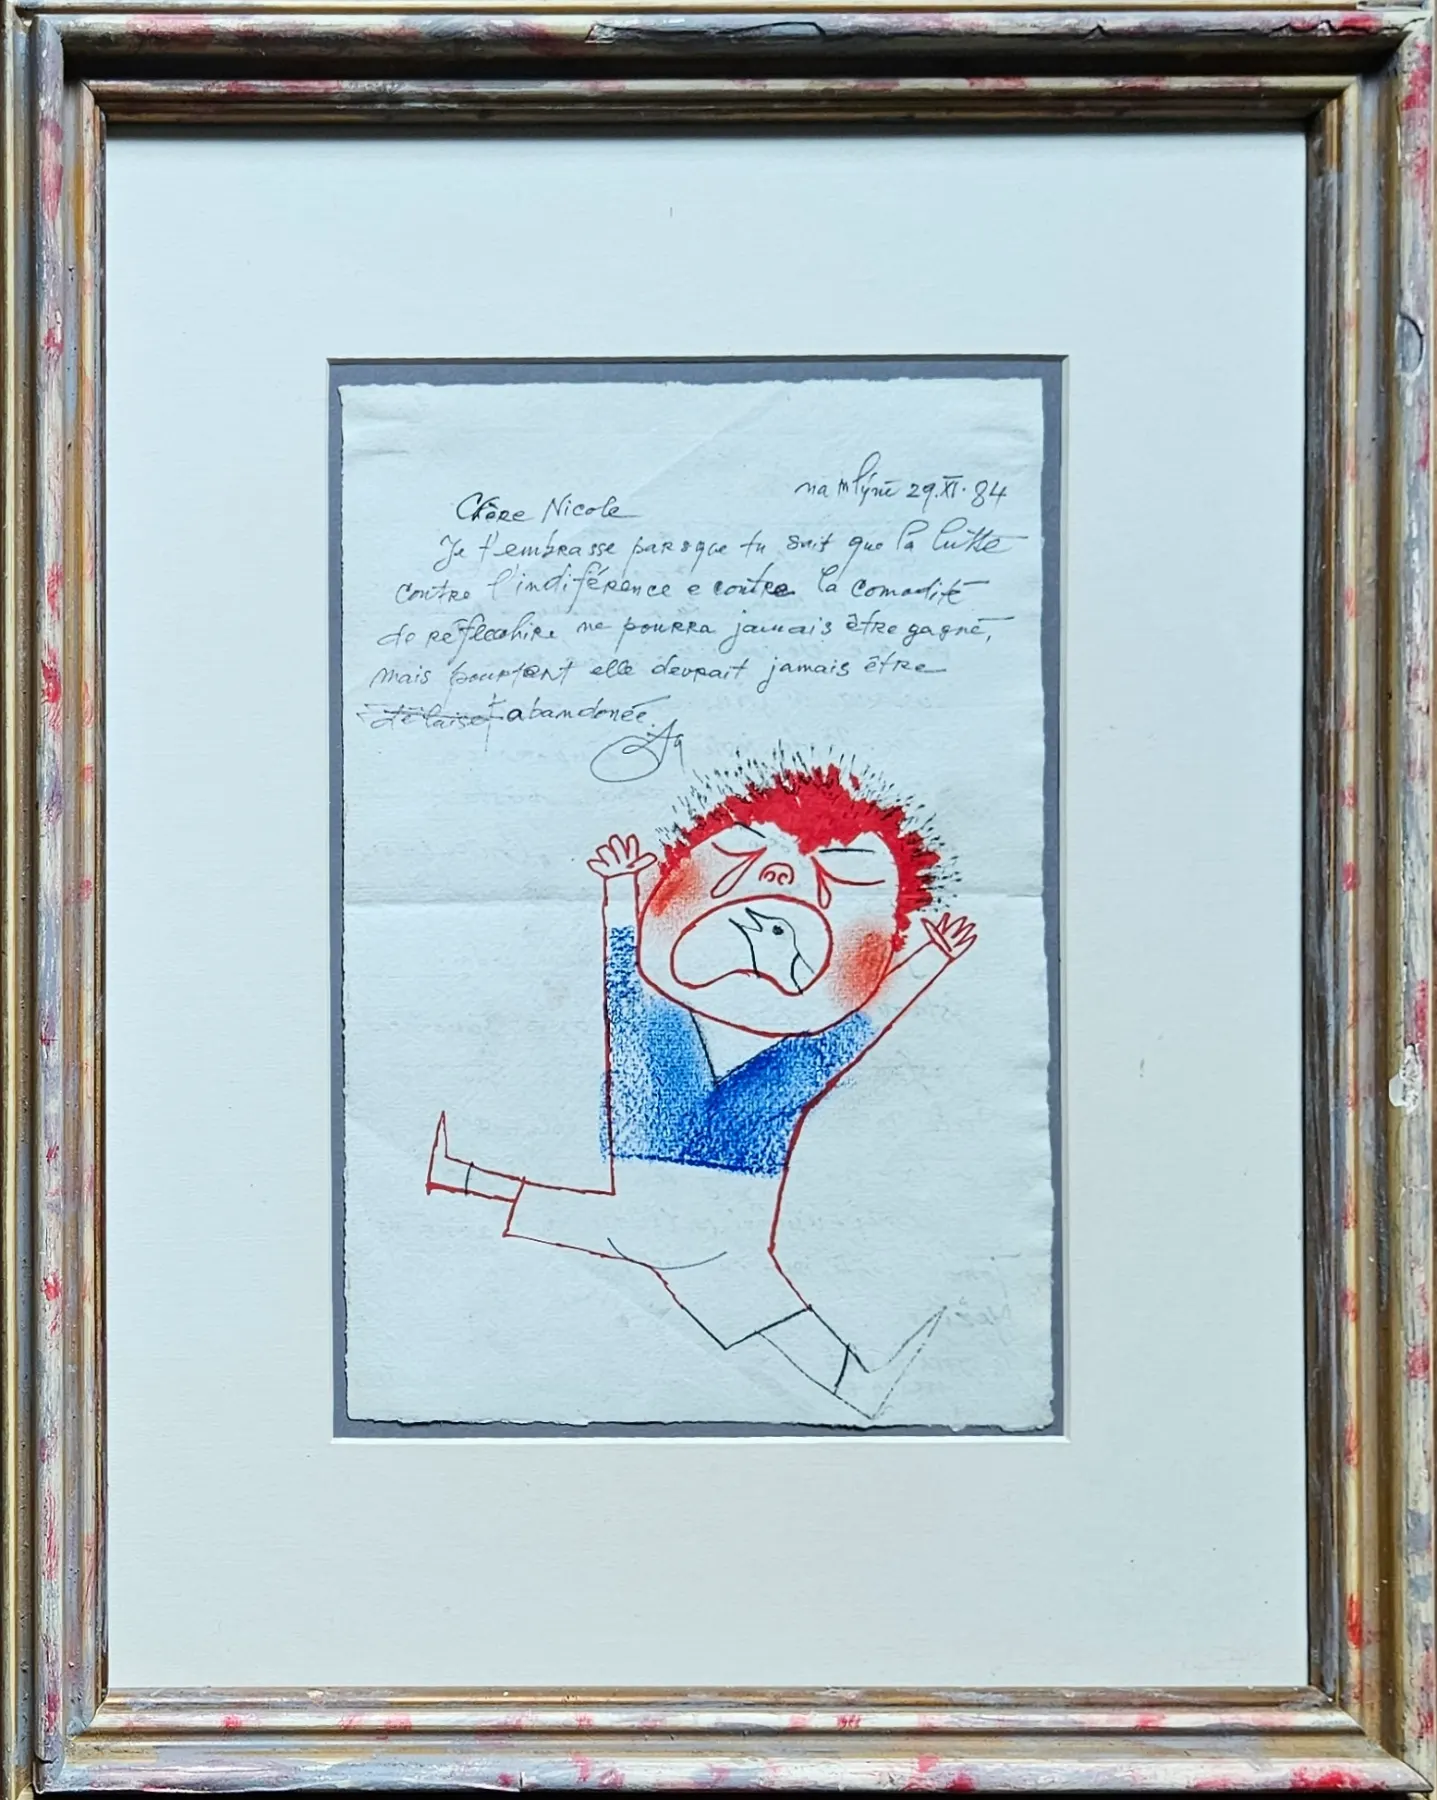 na mlýně 29.XI.84
Chère Nicole
Je t'embrasse parsque tu sait que la lutte
contre l'indiférence e contre la comodité
de réflechire ne pourra jamais être gagné,
mais pourtant elle devrait jamais être
délaisé abandonée.